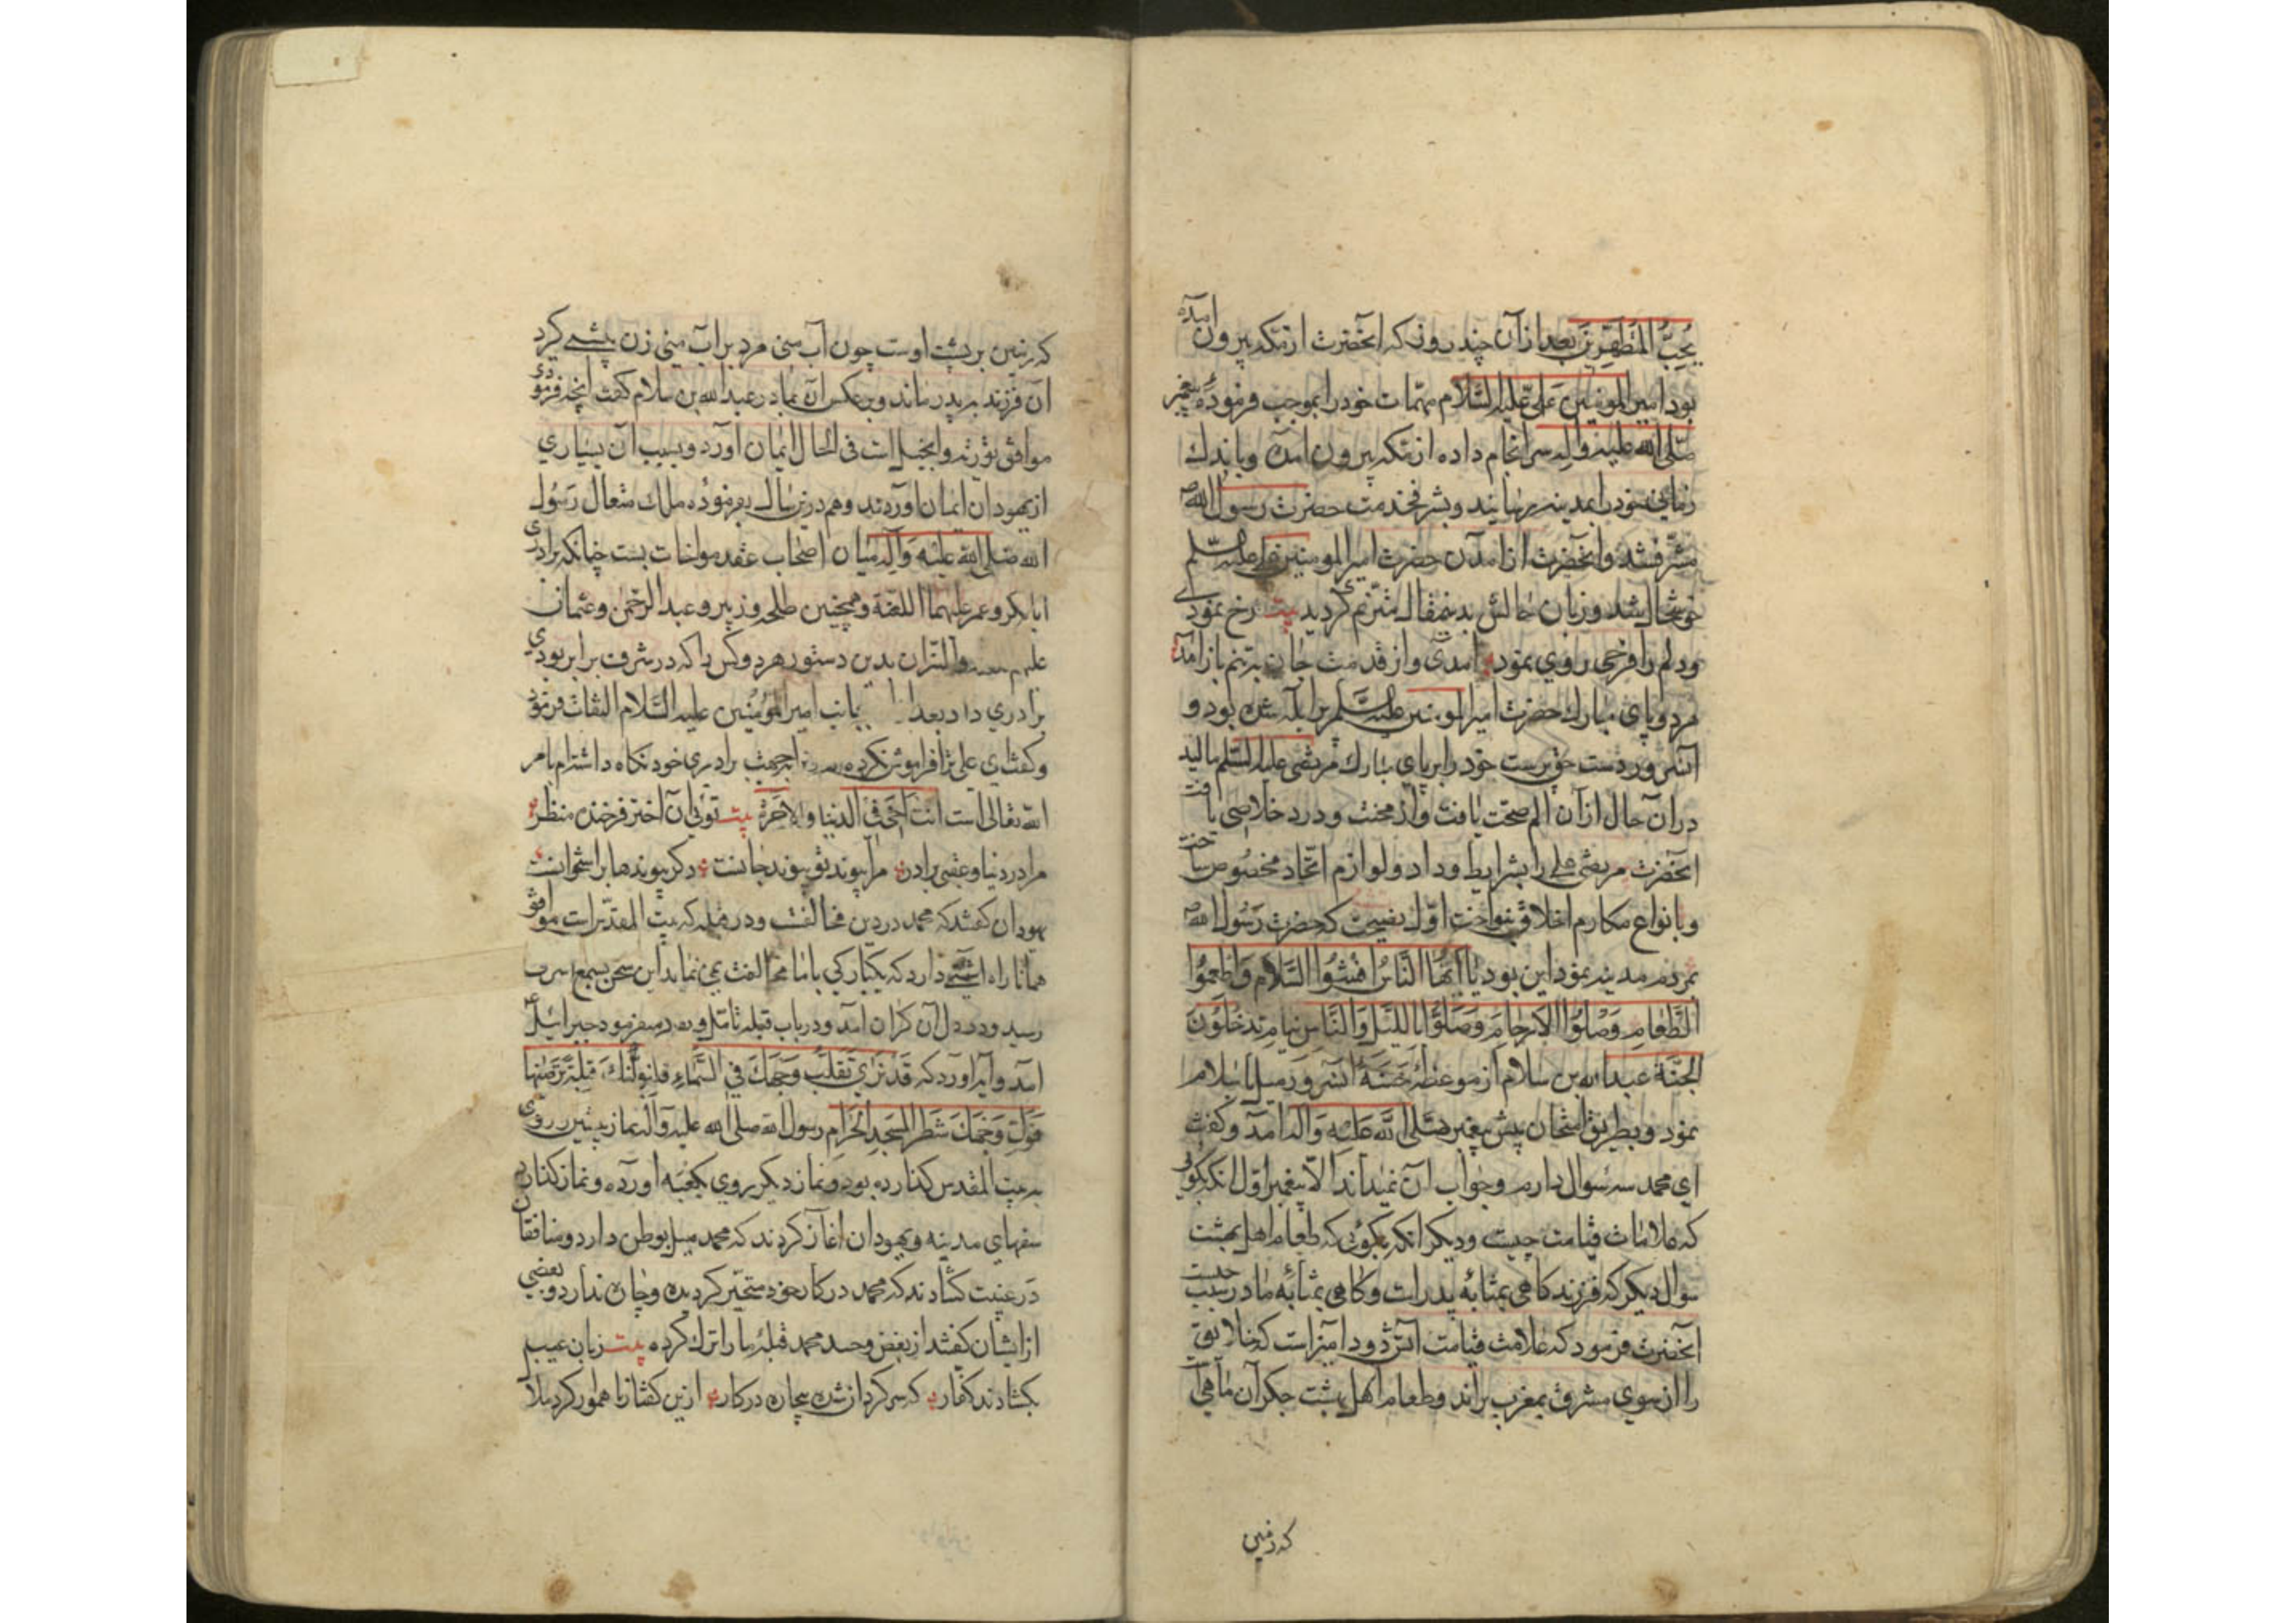 یُحِبُّ المُتَطَهِّرینَ بعد از آن چند روز که آنحضرت از مکه بیرون آمده
بود امیر المومنین علی علیه السّلام مهمّات خود را بموجب فرمودهٔ پیغمبر
صلّی الله علیه واله سرانجام داده از مکه بیرون آمده و باندک
زمانی خود را بمدینه رسانید و بشرف خدمت حضرت رسول الله ص
مشرّف شد و آنحضرت از آمدن حضرت امیر المومنین علی علیه السلم
خوشحال شد و زبان حالش بدینمقال مترنم گردید بیت رخ نمودی
ودلم را فرحی روی نمود آمدی واز قدمت جان بتنم باز آمد
هر دو پای مبارک حضرت امیر المومنین علیه السلم پر ابله شده بود و
آنسرور دست حق پرست خود را بر پای مبارک مرتضی علیه السلم مالید
در آن حال از آن الم صحت یافت واز محنت و درد خلاصی یافت
انحضرت مرتضی علی را بشرایط وداد ولوازم اتحاد مخصوص ساخت
وبانواع مکارم اخلاق بنواخت اوّل نصیحتی که حضرت رَسُول الله ص
بمردم مدینه نمود این بود یا اَیُّهَا النَّاسُ افشُوا السَّلام وَاطعِمُوا
الطَّعامِ وَصِلُوا الاَرحامَ وَصَلُّوا باللیَّلِ وَالنَّاسِ نیامٍ تدخُلُونَ
الجنَّة عبد الله بن سلام از موعظهٔ حسنهٔ آنسرور میل باسلام
نمود و بطریق امتحان پیش پیغمبر صَلّی اللَّه عَلَیه وَاله آمد و گفت
ای محمد سه سوال دارم وجواب آن نمیداند الّا پیغمبر اوّل انکه بگوئی
که علامات قیامت چیست و دیگر انکه بگوئی که طعام اهل بهشت چیست
سوال دیگر که فرزند گاهی بمثابهٔ پدر است وگاهی بمثابهٔ مادر سبب
آنحضرت فرمود که علامت قیامت آتش دود آمیز است که خلایق
را از سوی مشرق بمغرب براند وطعام اهل بهشت جگر آن ماهی
که زمین
که زمین بر پشت اوست چون آب منی مرد بر آب منی زن پیشی کرد
آن فرزند به پدر ماند و بر عکس آن بمادر عبد الله بن سلام گفت انچه فرمودی
موافق توریة وانجیل است فی الحال ایمان آورد و بسبب آن بسیاری
از یهودان ایمان اوردند و هم درین سال بفرمودهٔ ملک متعال رَسُول
الله صلی الله علیه وَآله میان اصحاب عقد مواخات بست چنانکه برادری
ابابکر وعمر علیهما اللعنة وهمچنین طلحه وزبیر وعبد الرحمن وعثمان
علیهم والنیران بدین دستور هر دو کس را که در شرف برابر بودی
برادری داد بعد بجانب امیر المؤمنین علیه السّلام التفات فرمود
وگفت ای علی ترا فراموش نکرده از جهت برادری خود نگاه داشته ام بامر
الله تعالی است انت اَخی فی الدنیا والاخرة بیت توئی آن اختر فرخنده منظر
مرا در دنیا وعقبی برادر مرا پیوند تو پیوند جانست دگر پیوندها بر استخوانست
یهودان گفتند که محمد در دین مخالفت و در قبله که بیت المقدّس است موافق
همانا راه آشتی دارد که یکبارگی با ما مخالفت نمی نماید این سخن بسمع اشرف
رسید و در دل آن گران آمد و در باب قبله تامّل و میفرمود جبرائیل ع
آمد وآیه آورد که قَد نَرَای تَقَلُّبَ وَجهَکَ فِی السَّماءِ فلنولّینَّکَ قِبلَةً تَرضیها
فَوَلِّ وَجهَکَ شَطرَ المَسجِدِ الحَرامِ رسول الله صلی الله علیه وَآله نماز پیشین روی
به بیت المقدس گذارده بود ونماز دیگر بروی بکعبه اورده ونماز گذارد
سفهای مدینه ویهودان اغاز کردند که محمد میل بوطن دارد ومنافقان
در غیبت گشادند که محمد در کار خود متحیّر گردیده وچاره ندارد وبعضی
از ایشان گفتند از بغض وحسد محمد قبلهٔ ما را ترک کرده بیت زبان عیب
بگشادند کفار که سرگردان شده بیچاره در کار ازین گفتارنا هموار کرد ملا